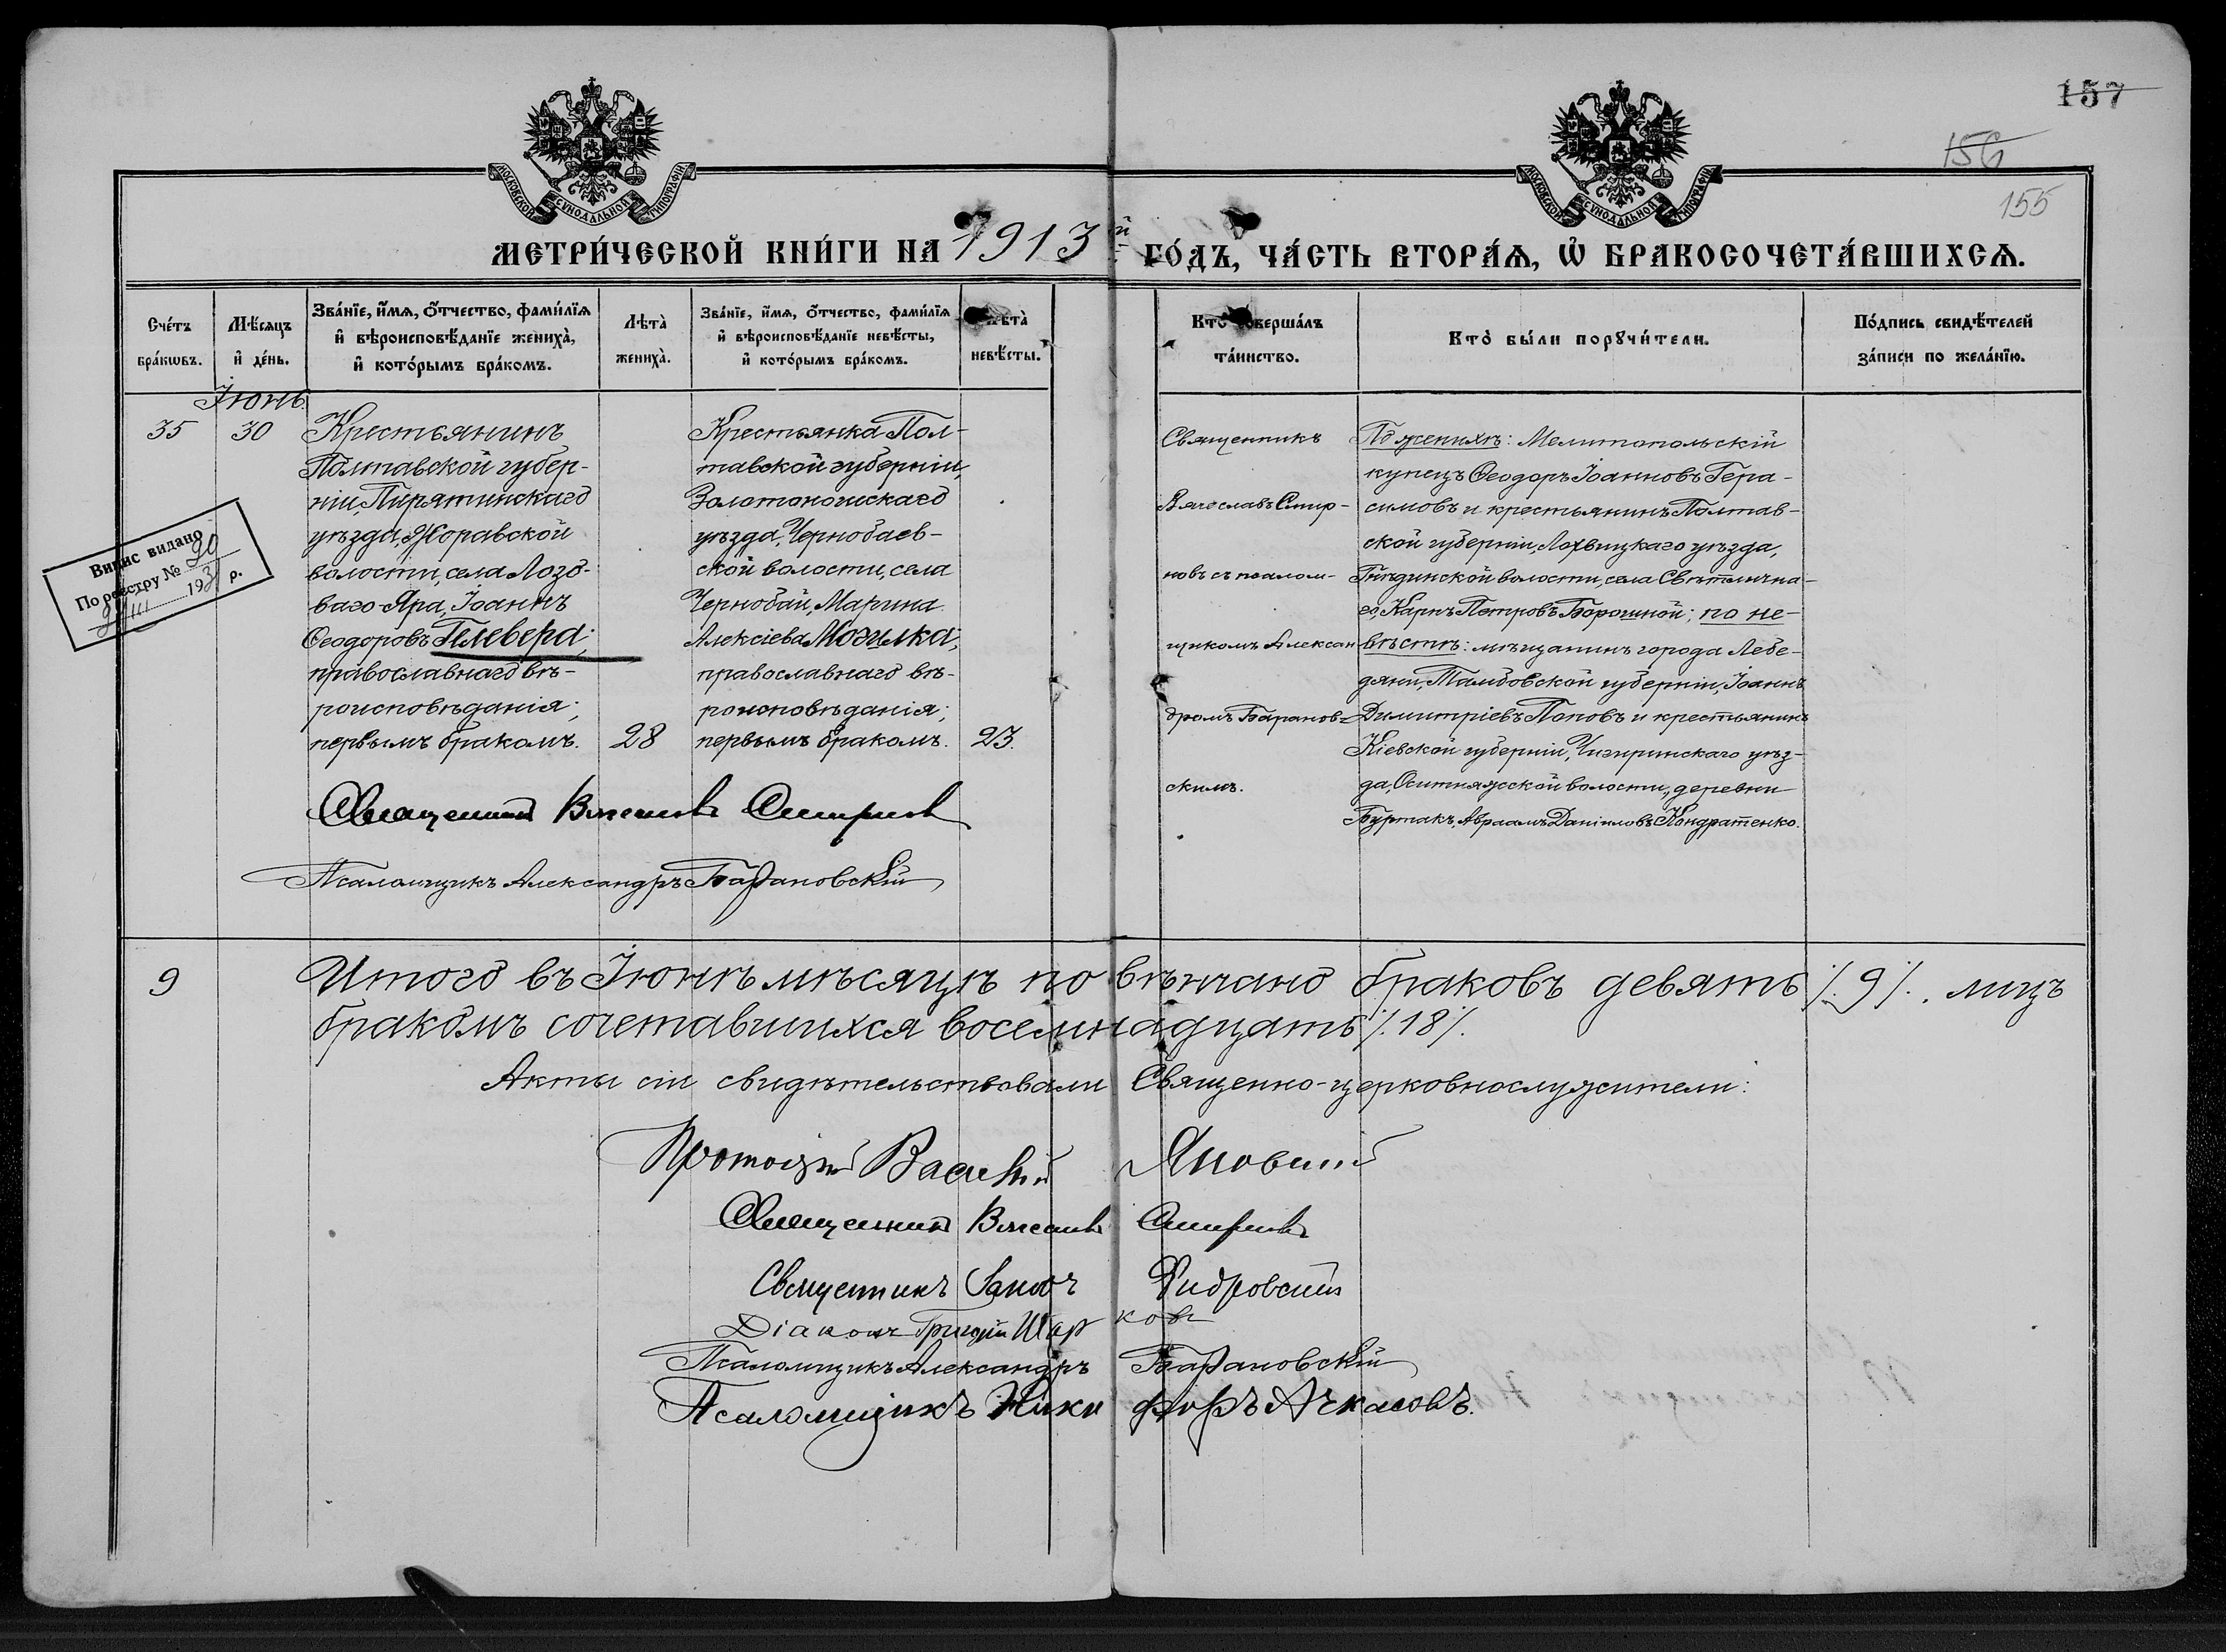 157
156
155
МОСКОВСКОЙ СѴНОДАЛЬНОЙ ТИПОГРАФІИ
МОСКОВСКОЙ СѴНОДАЛЬНОЙ ТИПОГРАФІИ
МЕТРИ́ЧЕСКОЙ КНИ́ГИ НА 1913й ГО́ДЪ, ЧА́СТЬ ВТОРА́Ѧ, Ѡ҆ БРАКОСОЧЕТА́ВШИХСѦ.
Сче́тъ бра́кѡвъ.
Мѣ́сяцъ и҆ де́нь.
Зва́нїе, и҆́мѧ, ѻ҆́тчество, фами́лїѧ и҆ вѣроисповѣ́данїе жениха̀, и҆ кото́рымъ бра́комъ.
Лѣта̀ жениха̀.
Зва́нїе, и҆́мѧ, ѻ҆́тчество, фами́лїѧ и҆ вѣроисповѣ́данїе невѣ́сты, и҆ кото́рымъ бра́комъ.
Лѣта̀ невѣ́сты.
Кто̀ соверша́лъ та́инство.
Кто̀ бы́ли порꙋчи́тели.
По́дпись свидѣ́телей за́писи по жела́нїю.
Іюнь.
35
30
Крестьянинъ
Полтавской губер-
ніи, Пирятинскаго
уѣзда, Жоравской
волости, села Лозо-
ваго-Яра, Іоаннъ
Ѳеодоровъ Гелевера;
православнаго вѣ-
роисповѣданія;
первымъ бракомъ.
28
Крестьянка Пол-
тавской губерніи,
Золотоношскаго
уѣзда, Чернобаев-
ской волости, села
Чернобай, Марина
Алексіева Могилка;
православнаго вѣ-
роисповѣданія;
первымъ бракомъ.
23.
Священникъ
Вячеславъ Смир-
новъ съ псалом-
щикомъ Алексан
дромъ Баранов-
скимъ.
По женихѣ: Мелитопольскій
купецъ Ѳеодоръ Іоанновъ Гера-
симовъ и крестьянинъ Полтав-
ской губерніи, Лохвицкаго уѣзда,
Гнѣдинской волости, села Свѣтлична-
го, Карпъ Петровъ Борошной; по не-
вѣстѣ: мѣщанинъ города Лебе-
дяни, Тамбовской губерніи, Іоаннъ
Димитріевъ Поповъ и крестьянинъ
Кіевской губерніи, Чигиринскаго уѣз-
да, Оситняжской волости, деревни
Буртакъ, Авраамъ Даніиловъ Кондратенко.
Випис видано
По реєстру № 90
ІІІ 193 р.
Священникъ Вячеславъ Смирновъ
Псаломщикъ Александръ Барановскій
9
Итого въ Іюнѣ мѣсяцѣ повѣнчано браковъ девять ./.9/., лицъ
бракомъ сочетавшихся восемнадцать ./.18/.
Акты сіи свидѣтельствовали Священно-церковнослужители:
Протоіерей Василій Яновскій
Священникъ Вячеславъ Смирновъ
Священникъ
Діаконъ Григорій Шарковъ
Псаломщикъ Александръ Барановскій
Псаломщикъ Никифоръ Ачкасовъ.